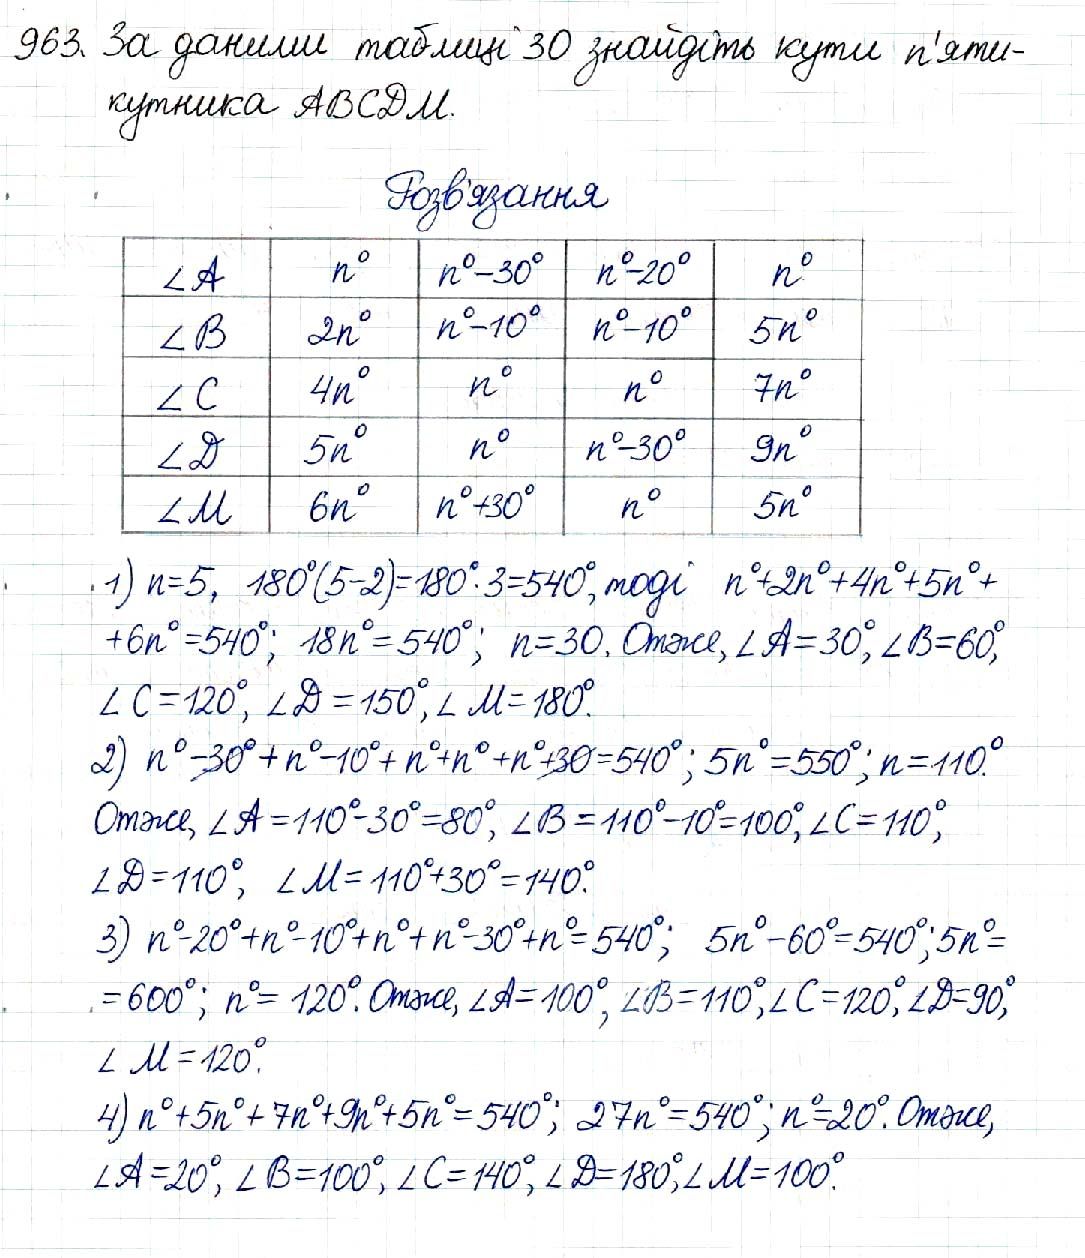 963. За даними таблиці 30 знайдіть кути п'яти-
кутника ABCDM.
Розв'язання
∠A n° n°-30° n°-20° n°
∠B 2n° n°-10° n°-10° 5n°
∠C 4n° n° n° 7n°
∠D 5n° n° n°-30° 9n°
∠M 6n° n°+30° n° 5n°
1) n=5, 180°(5-2)=180°·3=540°, тоді n°+2n°+4n°+5n°+
+6n°=540°; 18n°=540°; n=30. Отже, ∠A=30°, ∠B=60°,
∠C=120°, ∠D=150°, ∠M=180°.
2) n°-30°+n°-10°+n°+n°+n°+30=540°; 5n°=550°; n=110°.
Отже, ∠A=110°-30°=80°, ∠B=110°-10°=100°, ∠C=110°,
∠D=110°, ∠M=110°+30°=140°.
3) n°-20°+n°-10°+n°+n°-30°+n°=540°; 5n°-60°=540°; 5n°=
=600°; n°=120°. Отже, ∠A=100°, ∠B=110°, ∠C=120°, ∠D=90°,
∠M=120°.
4) n°+5n°+7n°+9n°+5n°=540°; 27n°=540°; n°=20°. Отже,
∠A=20°, ∠B=100°, ∠C=140°, ∠D=180°, ∠M=100°.